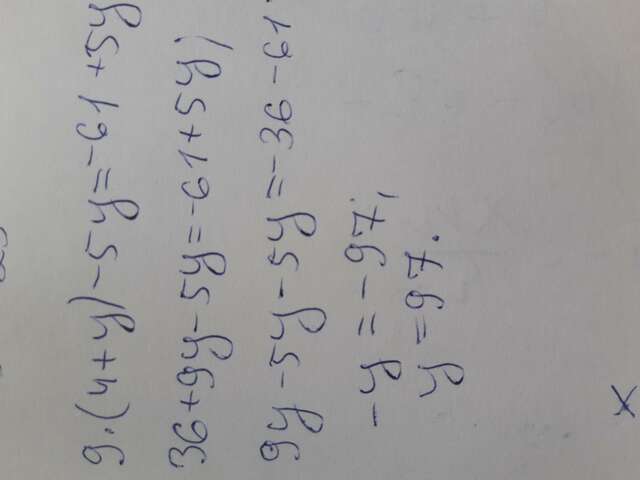 9·(4+y)-5y=-61+5y
36+9y-5y=-61+5y;
9y-5y-5y=-36-61
-y=-97;
y=97.
x